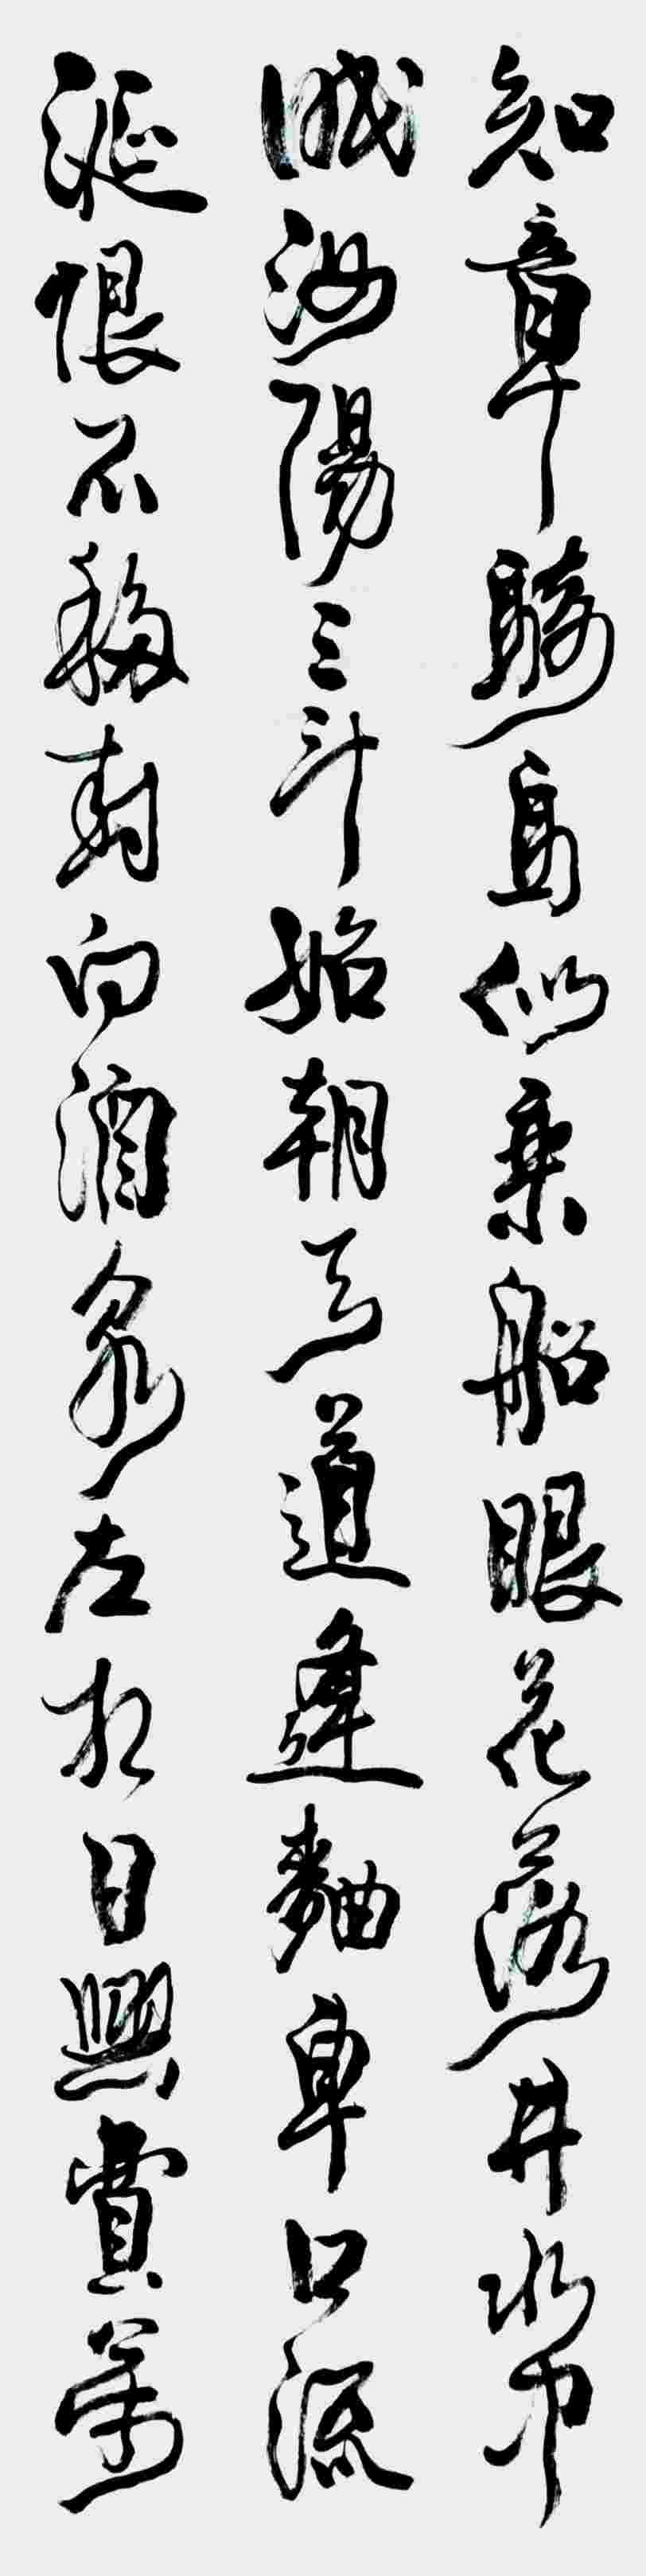 知章騎馬似乘船眼花落井水中
眠汝陽三斗始朝天道逢麯車口流
涎恨不移封向酒泉左相日興費萬